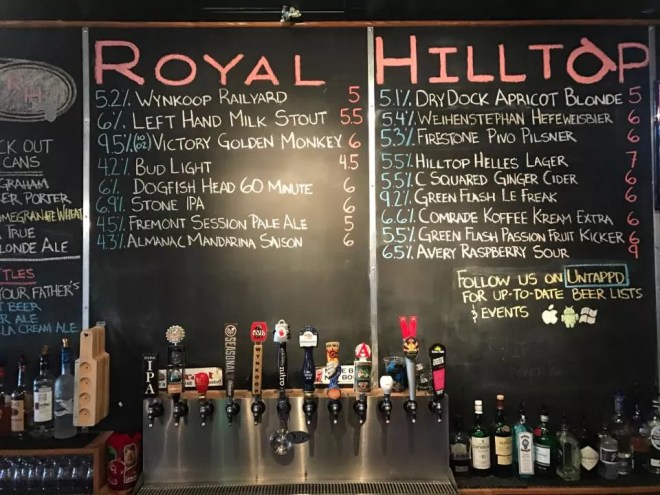 ROYAL HILLTOP
5.2% WYNKOOP RAILYARD 5
6% LEFT HAND MILK STOUT 5.5
9.5% VICTORY GOLDEN MONKEY 6
4.2% BUD LIGHT 4.5
6% DOGFISH HEAD 60 MINUTE 6
6.9% STONE IPA 6
4.5% FREMONT SESSION PALE ALE 5
4.3% ALMANAC MANDARINA SAISON 6
5.1% DRY DOCK APRICOT BLONDE 5
5.4% WEIHENSTEPHAN HEFEWEISBIER 6
5.3% FIRESTONE PIVO PILSNER 6
5.5% HILLTOP HELLES LAGER 7
5.5% C SQUARED GINGER CIDER 6
9.2% GREEN FLASH LE FREAK 6
6.6% COMRADE KOFFEE KREAM EXTRA 6
5.5% GREEN FLASH PASSION FRUIT KICKER 6
6.5% AVERY RASPBERRY SOUR 9
FOLLOW US ON UNTAPPD
FOR UP-TO-DATE BEER LISTS
& EVENTS
RH
CK OUT
CANS
GRAHAM
ER PORTER
OMEGRANATE WHEAT
TRUE
LONDE ALE
TLES
YOUR FATHER'S
T BEER
ER ALE
LA CREAM ALE
IPA
SEASONAL
WYNKOOP
nitro
A